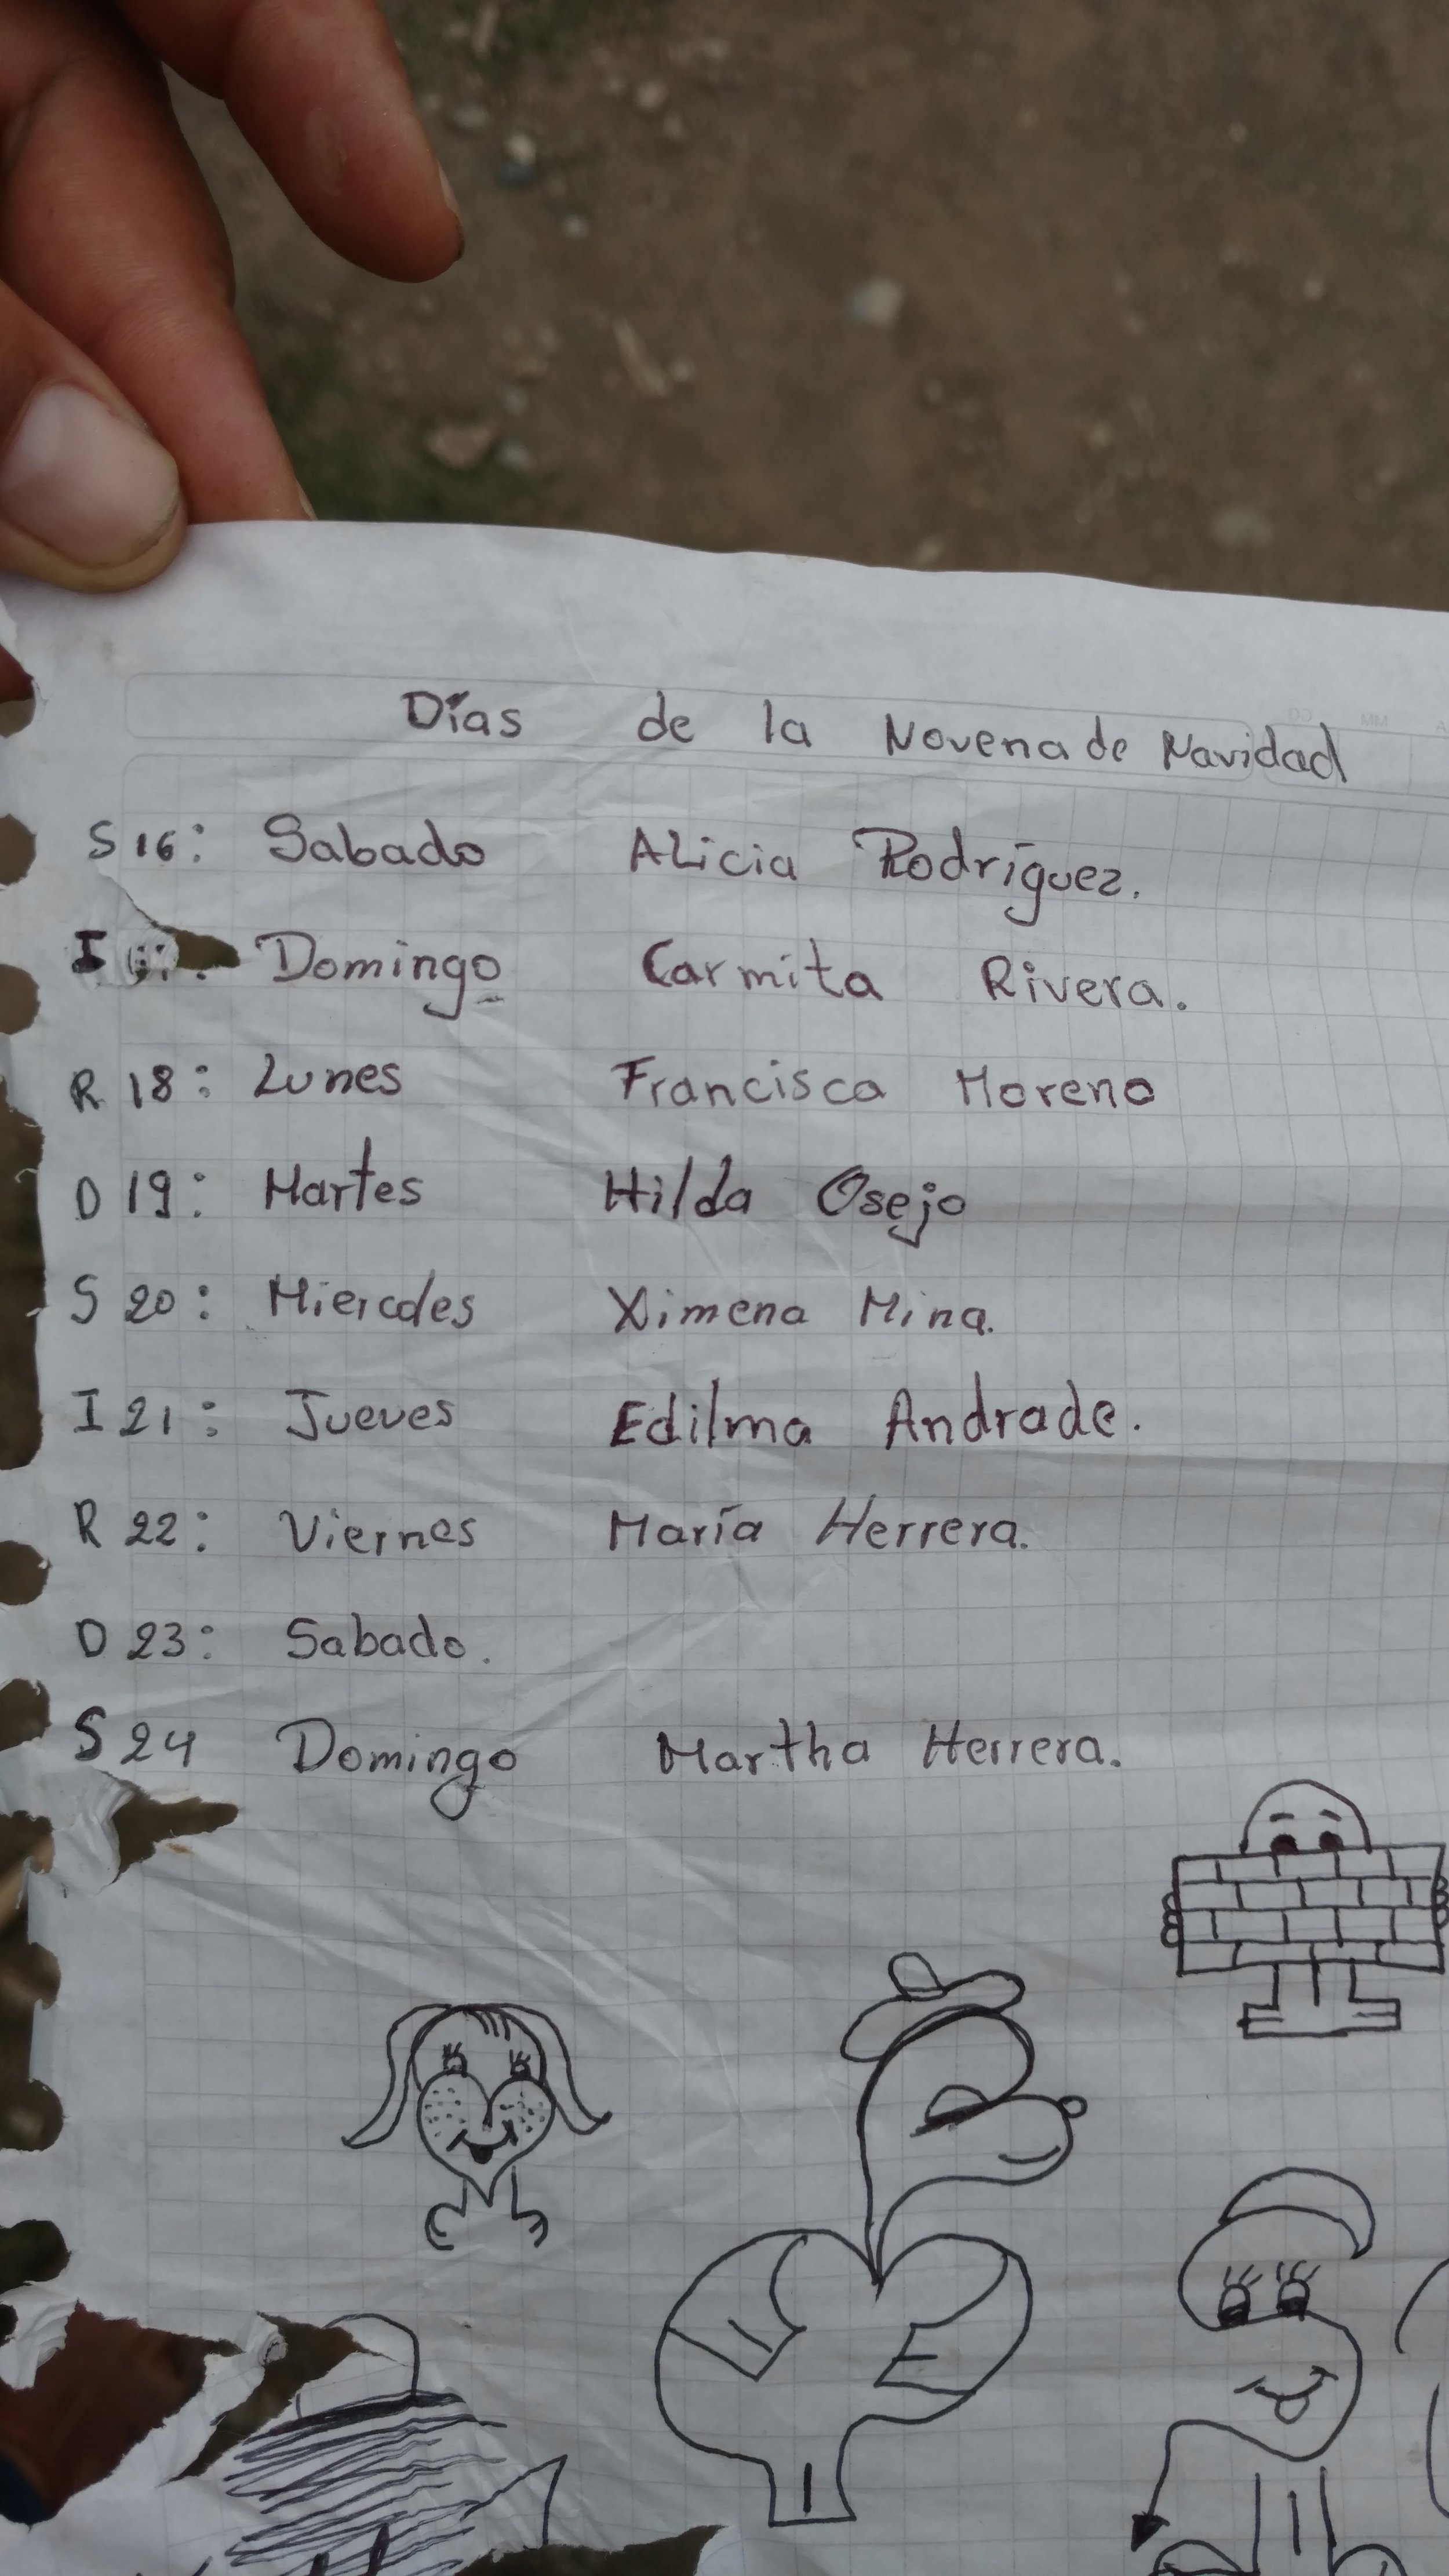 Días de la Novena de Navidad
S 16: Sabado Alicia Rodríguez.
I Domingo Carmita Rivera.
R 18: Lunes Francisca Moreno
D 19: Martes Hilda Osejo
S 20: Miercoles Ximena Mina.
I 21: Jueves Edilma Andrade.
R 22: Viernes María Herrera.
D 23: Sabado.
S 24 Domingo Martha Herrera.